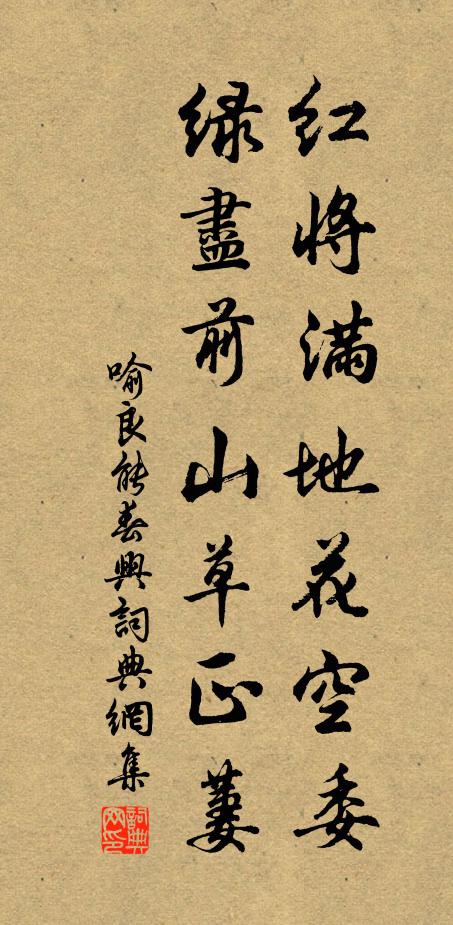 红将满地花空委
緑盡前山草正萋
喻良能春興詞典網集
詞典网印